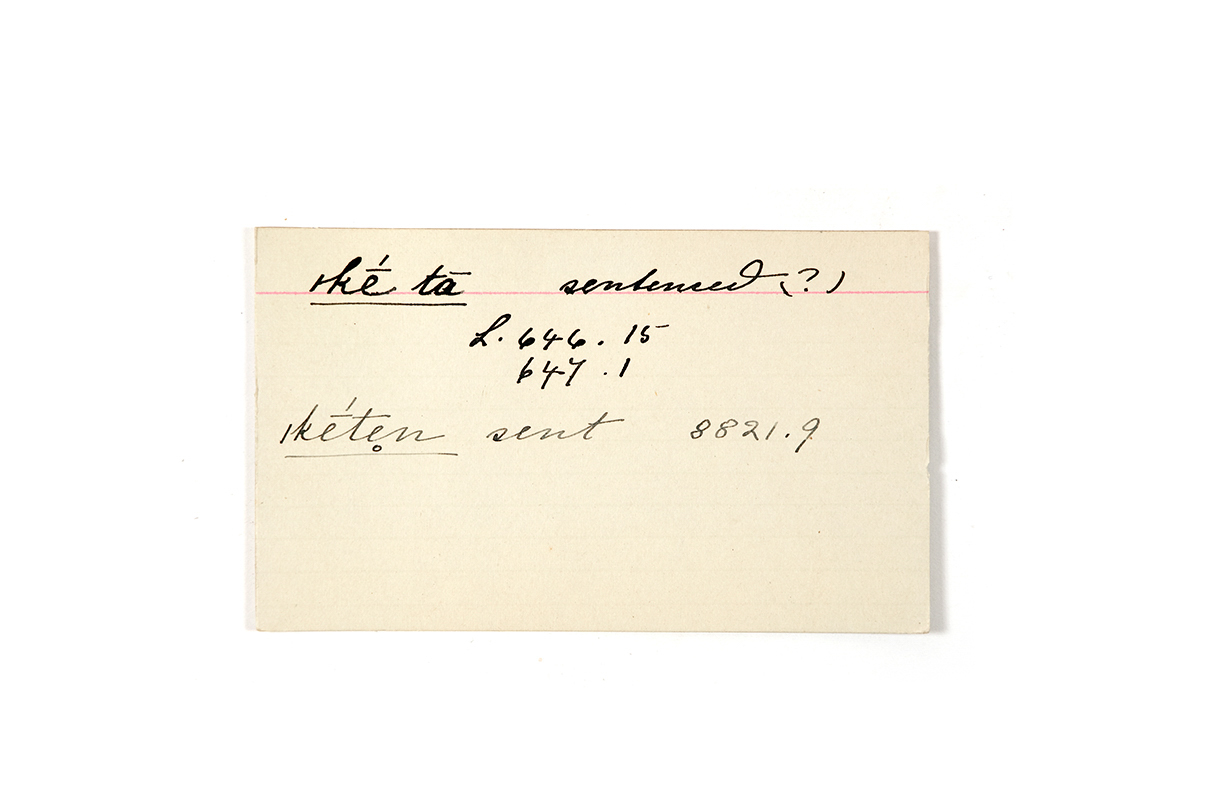 ıkḗ tā sentenced (?)
L. 646. 15
647. 1
ıkḗte̥n sent 8821.9